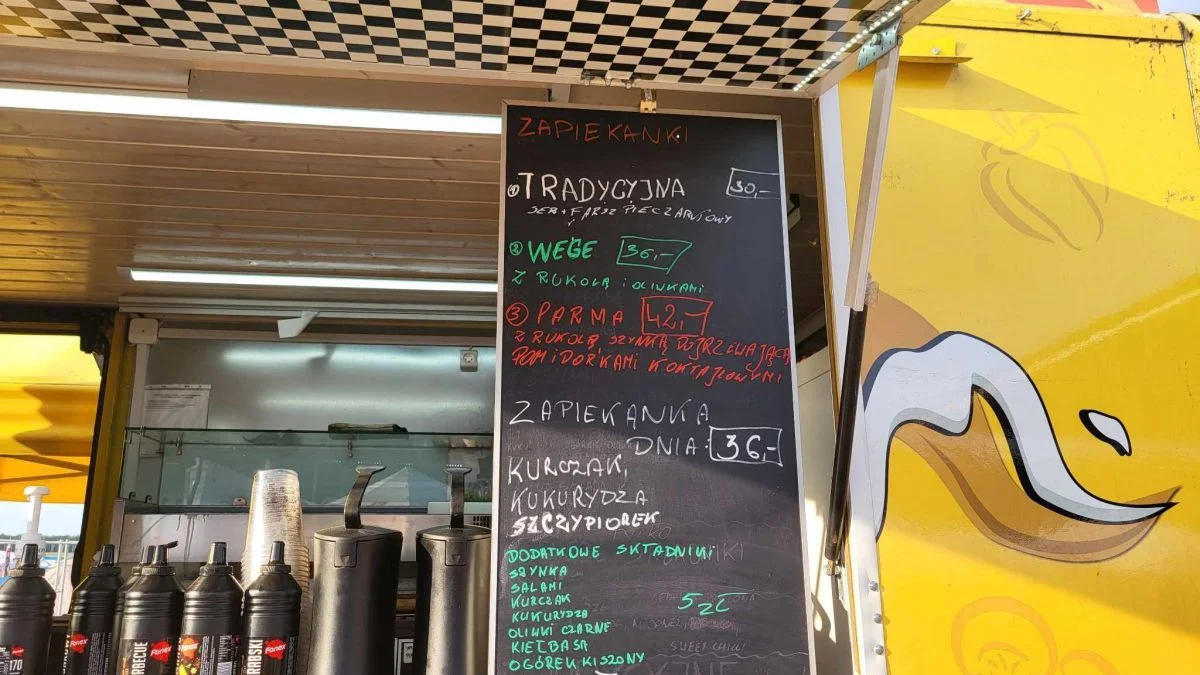 ZAPIEKANKI
① TRADYCYJNA 30,-
SER + FARSZ PIECZARKOWY
② WEGE 36,-
Z RUKOLĄ i OLIWKAMI
③ PARMA 42,-
Z RUKOLĄ SZYNKĄ DOJRZEWAJĄCĄ
POMIDORKAMI KOKTAJLOWYMI
ZAPIEKANKA
DNIA: 36,-
KURCZAK,
KUKURYDZA
SZCZYPIOREK
DODATKOWE SKŁADNIKI
SZYNKA
SALAMI
KURCZAK 5 ZŁ
KUKURYDZA
OLIWKI CZARNE
KIEŁBASA
OGÓREK KISZONY
SWEET CHILLI
170 Fanex
Fanex
BARBECUE Fanex
Fanex
Fanex